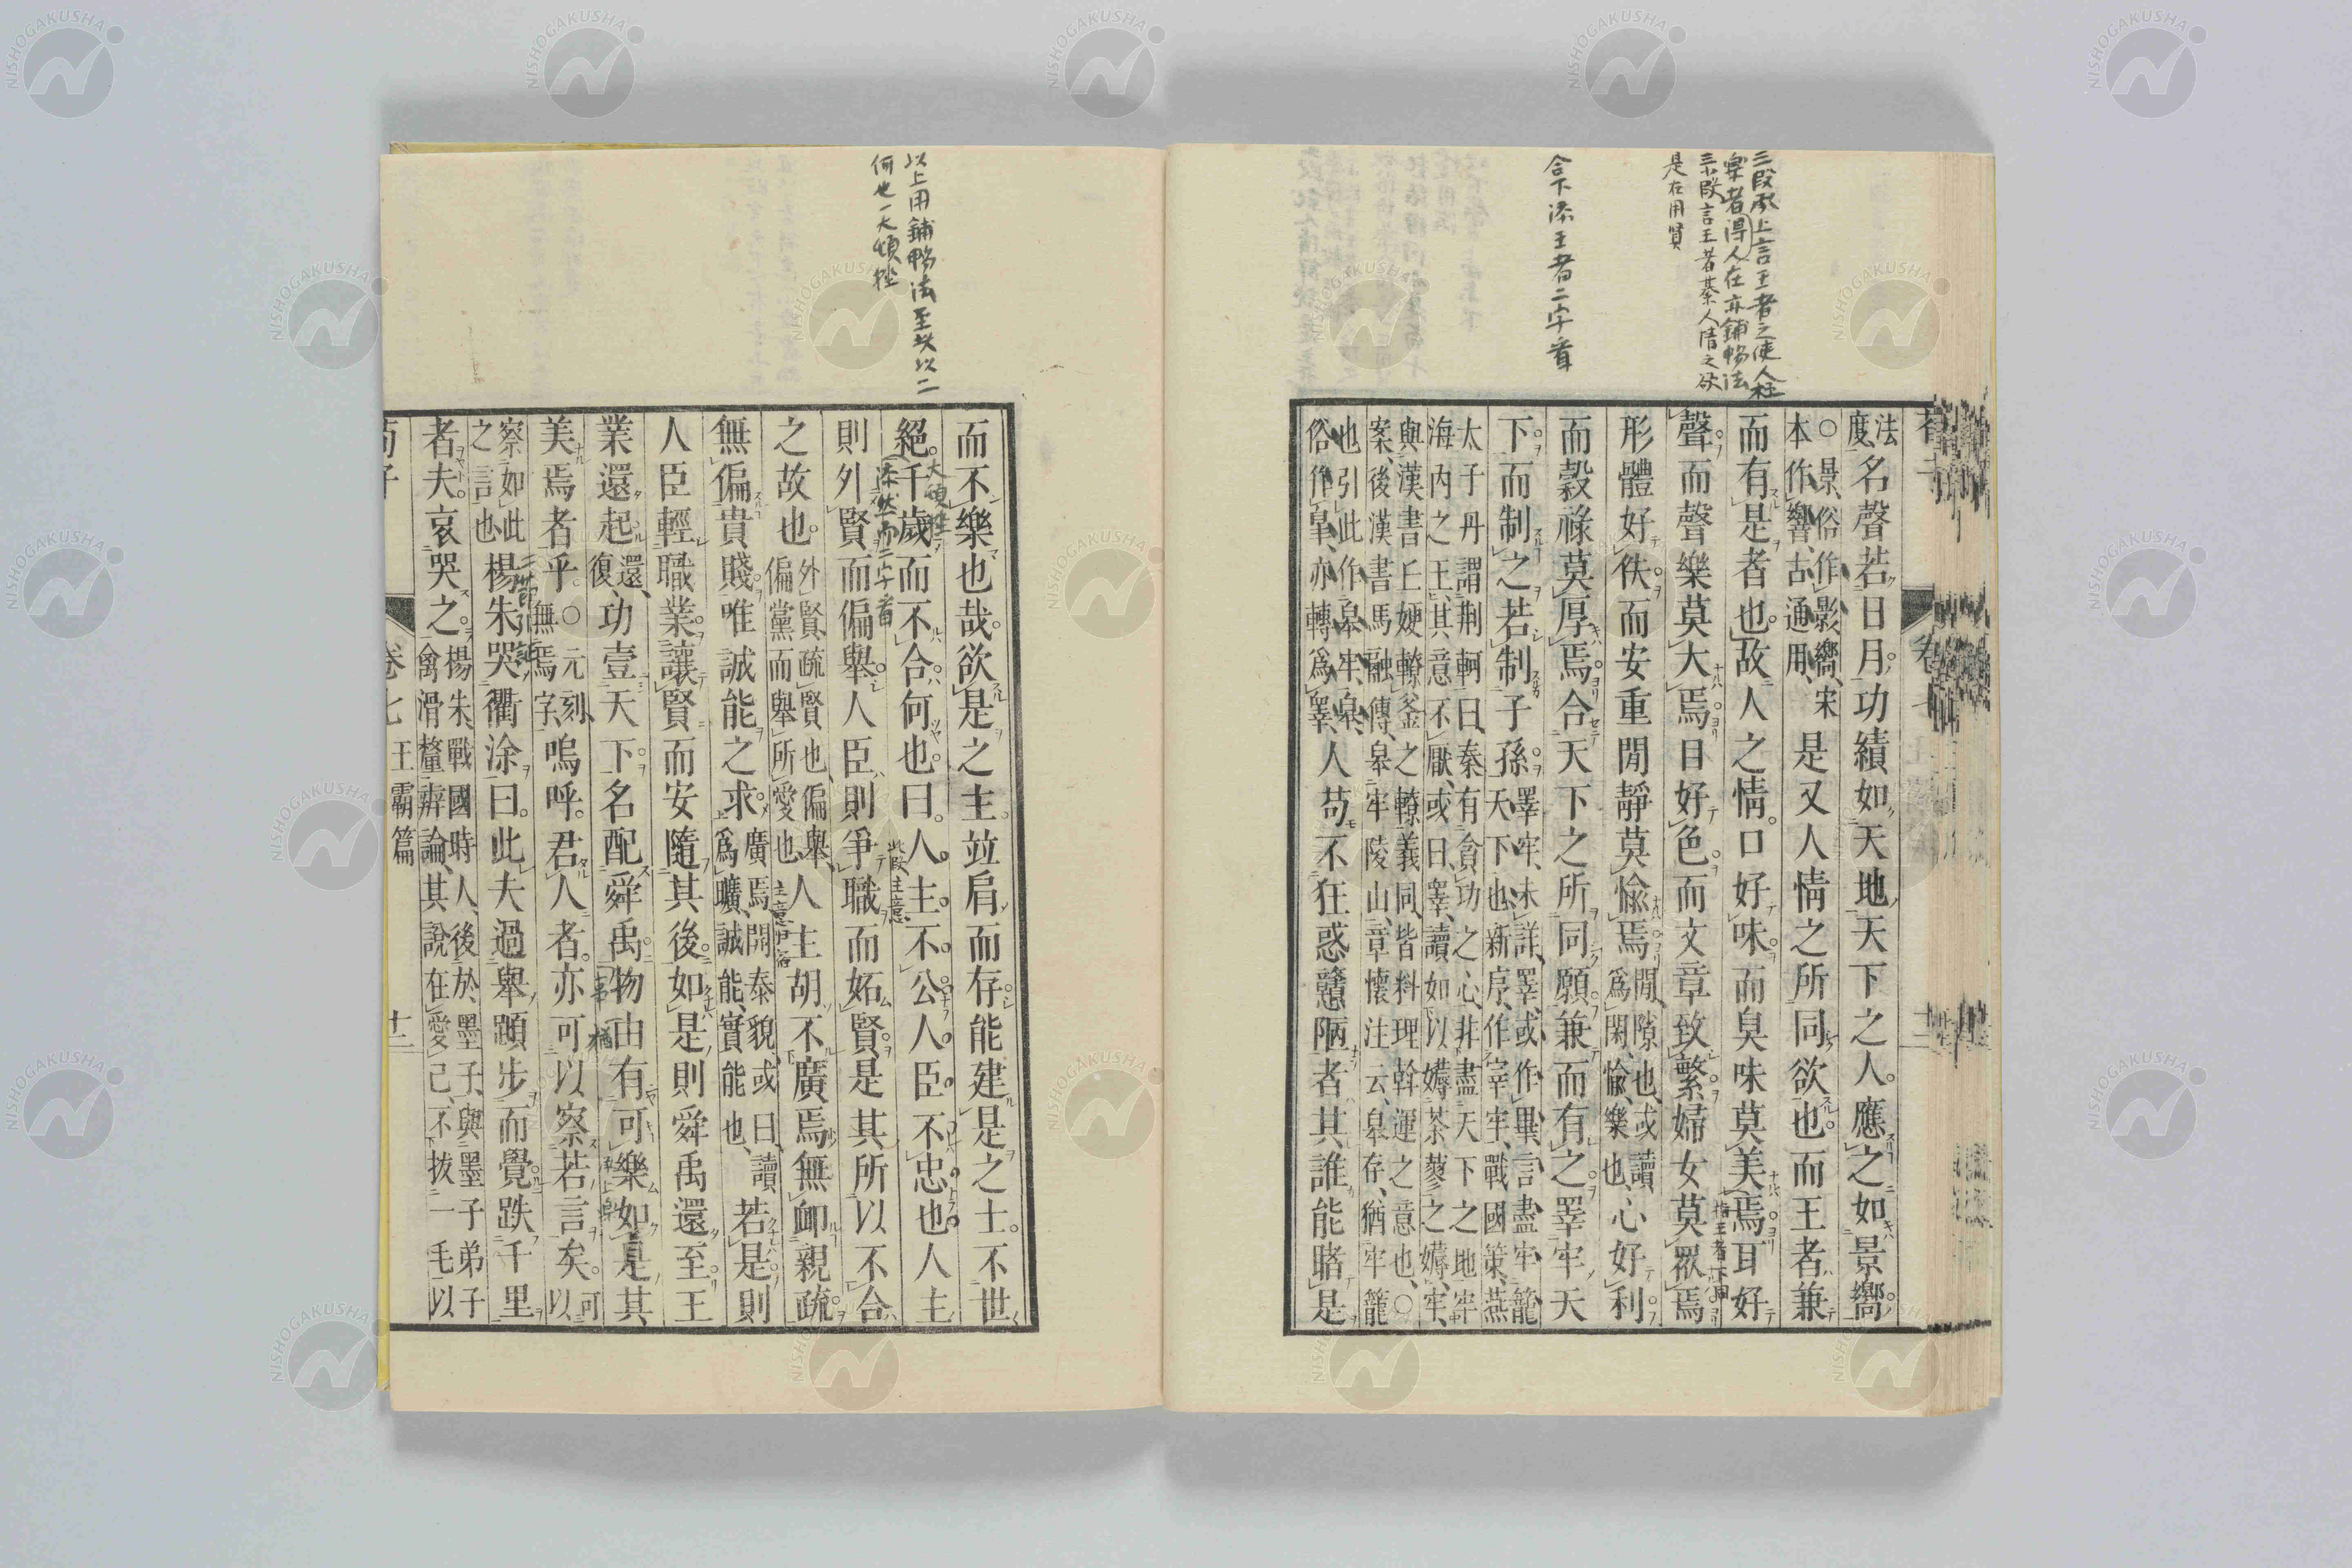 三段承上言王者之使人極
樂者得人在亦鋪暢法
三段言王者綦人情之欲
是在用賢
合下添王者二字看
法度、名聲若日月功績如天地天下之人。應之如景嚮
○景、俗作影、嚮、宋本作響、古通用、是又人情之所同欲也而王者兼
而有是者也故人之情口好味而臭味莫美焉耳好
聲而聲樂莫大焉目好色而文章致繁婦女莫眾焉
形體好佚而安重閒靜莫愉焉閒、隙也、或讀爲閑、愉、樂也、心好利
而穀祿莫厚焉合天下之所同願兼而有之睪牢天
下而制之若制子孫睪牢、未詳、睪、或作畢、言盡牢籠天下也、新序、作宰牢、戰國策、燕
太子丹謂荆軻曰、秦有貪功之心、非盡天下之地牢
海內之王、其意不厭、或曰、睪、讀如以薅荼蓼之薅、牢、
與漢書丘嫂轑釜之轑義同、皆料理斡運之意也、○
案、後漢書馬融傳、皋牢陵山、章懷注云、皋存、猶牢籠
也引此作皋牢、皋、俗作睾、亦轉爲睪、人苟不狂惑戇陋者其誰能睹是
指王者下同
荀子
卷七
以上用鋪暢法至此以二
何也一大頓挫
而不樂也哉欲是之主竝肩而存能建是之士不世
絕千歲而不合何也曰人主不公人臣不忠也人主
大頓挫
添然而二字看
此段主意
則外賢而偏舉人臣則爭職而妬賢是其所以不合
之故也外賢、疏賢也、偏舉、偏黨而舉所愛也人主胡不廣焉無卹親疏
無偏貴賤唯誠能之求廣焉、開泰貌、或曰、讀爲曠、誠能、實能也、若是則
人臣輕職業讓賢而安隨其後如是則舜禹還至王
業還起還、復、功壹天下名配舜禹物由有可樂如是其
美焉者乎○元刻、無焉字、嗚呼。君人者。亦可以察若言矣。可以
察如此之言也楊朱哭衢涂曰。此夫過舉蹞步而覺跌千里
者夫。哀哭之楊朱、戰國時人、後於墨子、與墨子弟子禽滑釐辨論、其說在愛己、不拔一毛以
荀子
卷七
王霸篇
十二